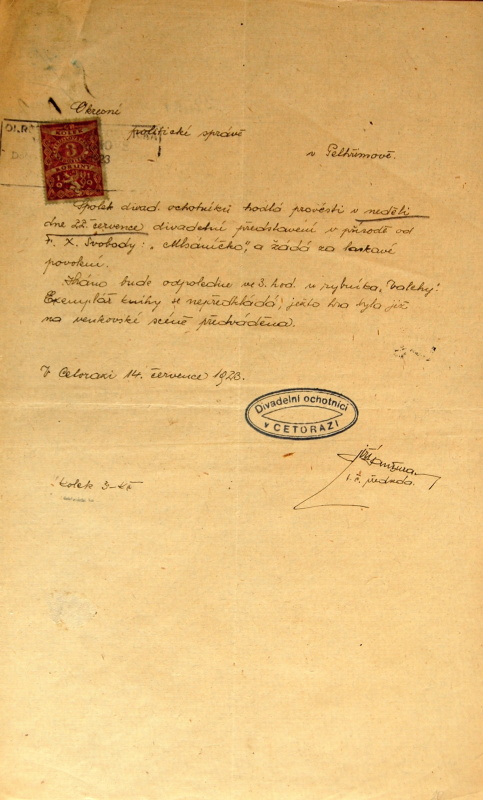 Okresní
politické správě
v Pelhřimově.
KOLEK
3
Spolek divad. ochotníků hodlá provésti v neděli
dne 22. července divadelní představení v přírodě od
F. X. Svobody: „Mlsáníčko", a žádá za laskavé
povolení.
Hráno bude odpoledne ve 3. hod. u rybníka „Valchy".
Exemplář knihy se nepředkládá, ježto hra byla již
na venkovské scéně předváděna.
V Cetorazi 14. července 1923.
Divadelní ochotníci
v CETORAZI
t. č. předseda.
Kolek 3-Kč